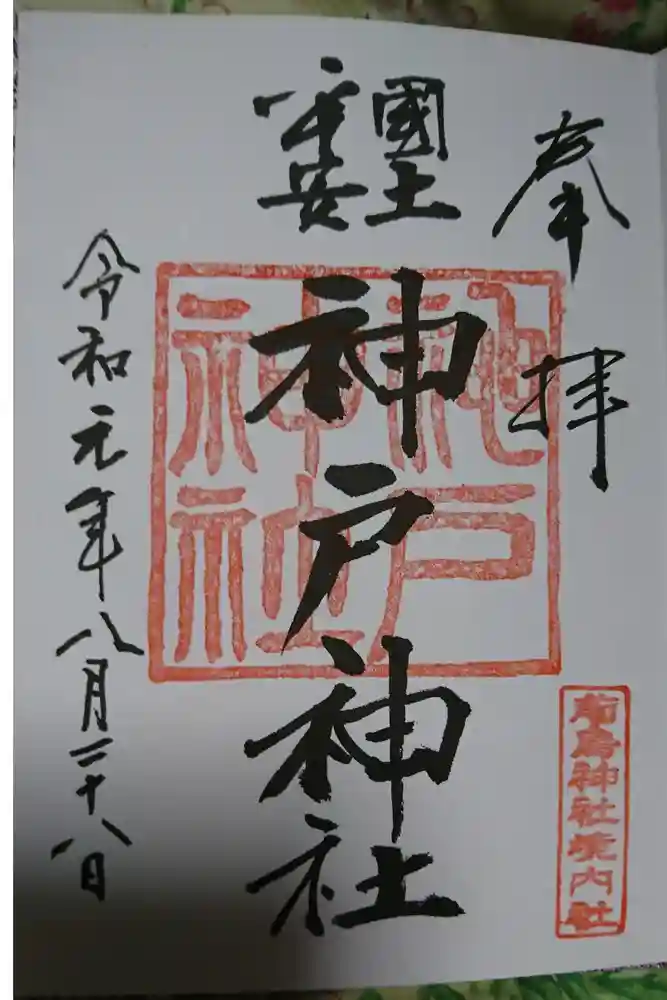 奉拝
國土
平安
神戸神社
神戸
神社
令和元年八月二十八日
菊鳥神社境内社